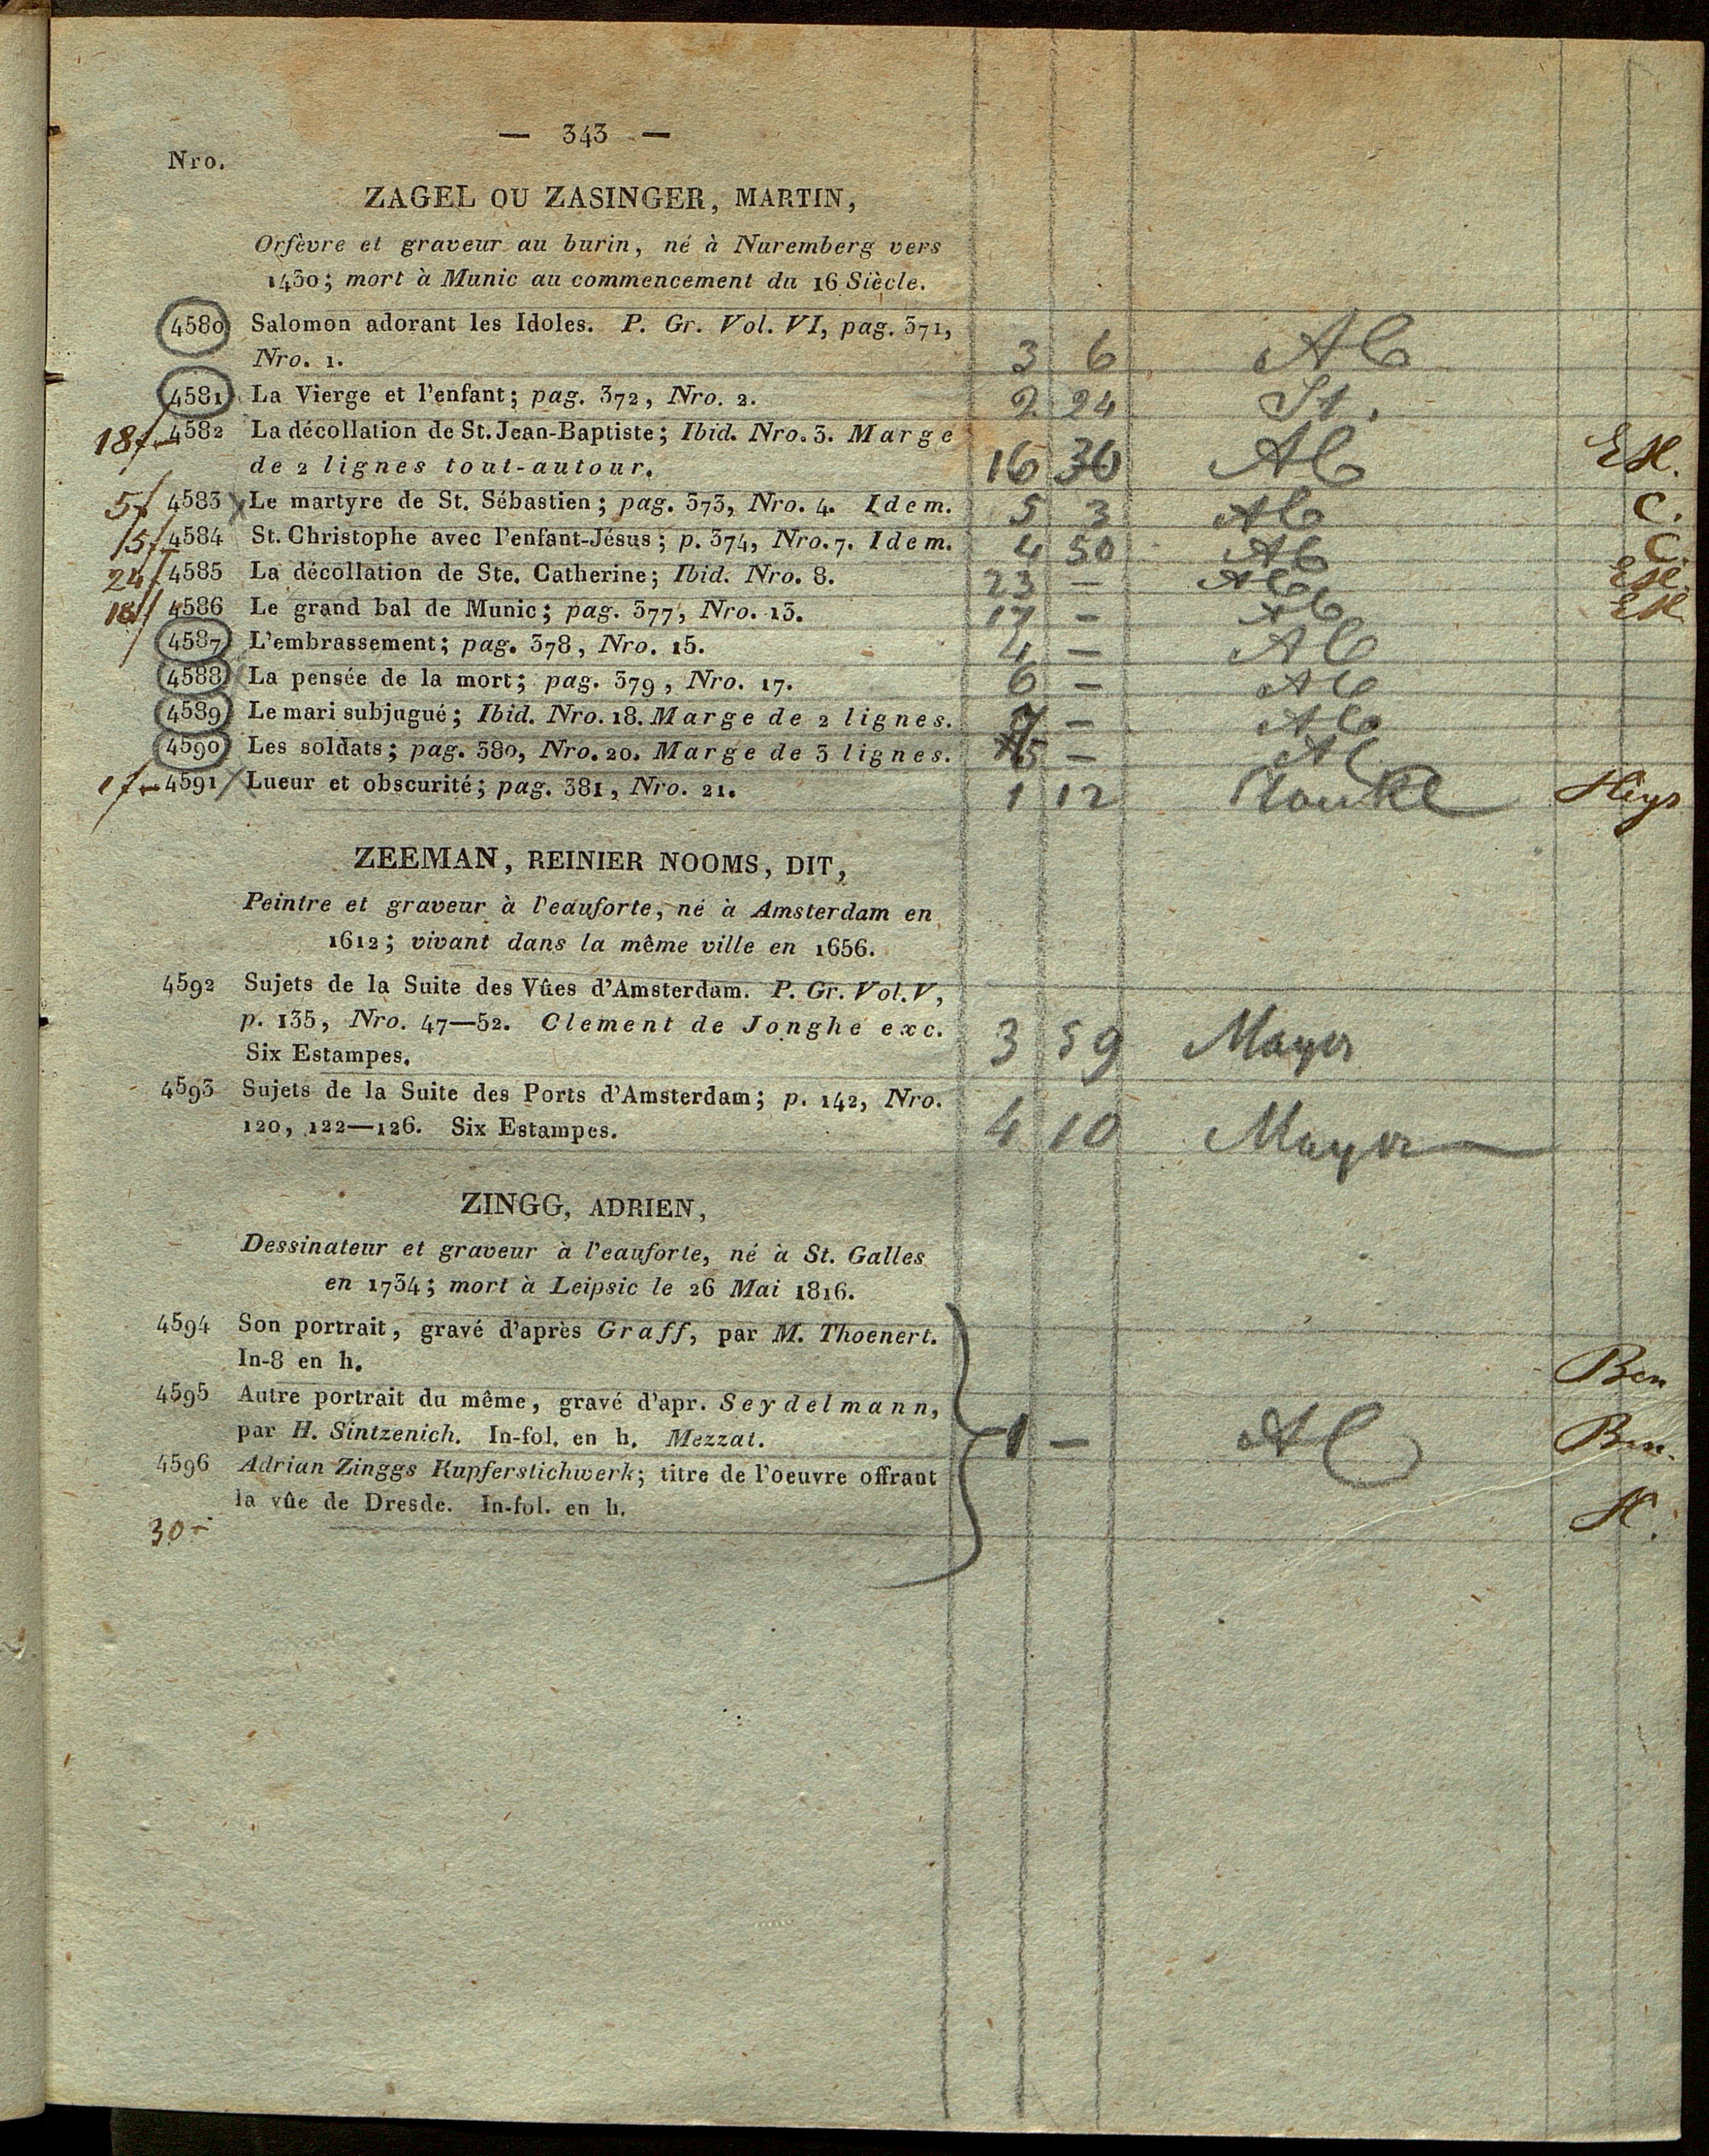 — 343 —
Nro.
ZAGEL OU ZASINGER, MARTIN,
Orfèvre et graveur au burin, né à Nuremberg vers
1430; mort à Munic au commencement du 16 Siècle.
4580 Salomon adorant les Idoles. P. Gr. Vol. VI, pag. 371,
Nro. 1. 3 6 Al
4581 La Vierge et l'enfant; pag. 372, Nro. 2. 2 24 St.
18f 4582 La décollation de St. Jean-Baptiste; Ibid. Nro. 3. Marge
de 2 lignes tout-autour. 16 36 Al EH.
5f 4583 Le martyre de St. Sébastien; pag. 373, Nro. 4. Idem. 5 3 Al C.
15f 4584 St. Christophe avec l'enfant-Jésus; p. 374, Nro. 7. Idem. 4 50 Al C.
24f 4585 La décollation de Ste. Catherine; Ibid. Nro. 8. 23 — Al EH.
18f 4586 Le grand bal de Munic; pag. 377, Nro. 13. 17 — Al EH
4587 L'embrassement; pag. 378, Nro. 15. 4 — Al
4588 La pensée de la mort; pag. 379, Nro. 17. 6 — Al
4589 Le mari subjugué; Ibid. Nro. 18. Marge de 2 lignes. 7 — Al
4590 Les soldats; pag. 380, Nro. 20. Marge de 3 lignes. 5 — Al
1f 4591 Lueur et obscurité; pag. 381, Nro. 21. 1 12
ZEEMAN, REINIER NOOMS, DIT,
Peintre et graveur à l'eauforte, né à Amsterdam en
1612; vivant dans la même ville en 1656.
4592 Sujets de la Suite des Vûes d'Amsterdam. P. Gr. Vol. V,
p. 135, Nro. 47—52. Clement de Jonghe exc.
Six Estampes. 3 59 Mayer
4593 Sujets de la Suite des Ports d'Amsterdam; p. 142, Nro.
120, 122—126. Six Estampes. 4 10 Mayer
ZINGG, ADRIEN,
Dessinateur et graveur à l'eauforte, né à St. Galles
en 1734; mort à Leipsic le 26 Mai 1816.
4594 Son portrait, gravé d'après Graff, par M. Thoenert.
In-8 en h. Ben
4595 Autre portrait du même, gravé d'apr. Seydelmann,
par H. Sintzenich. In-fol. en h. Mezzat. 1 — Al Ben.
4596 Adrian Zinggs Kupferstichwerk; titre de l'oeuvre offrant
la vûe de Dresde. In-fol. en h. H.
30 -